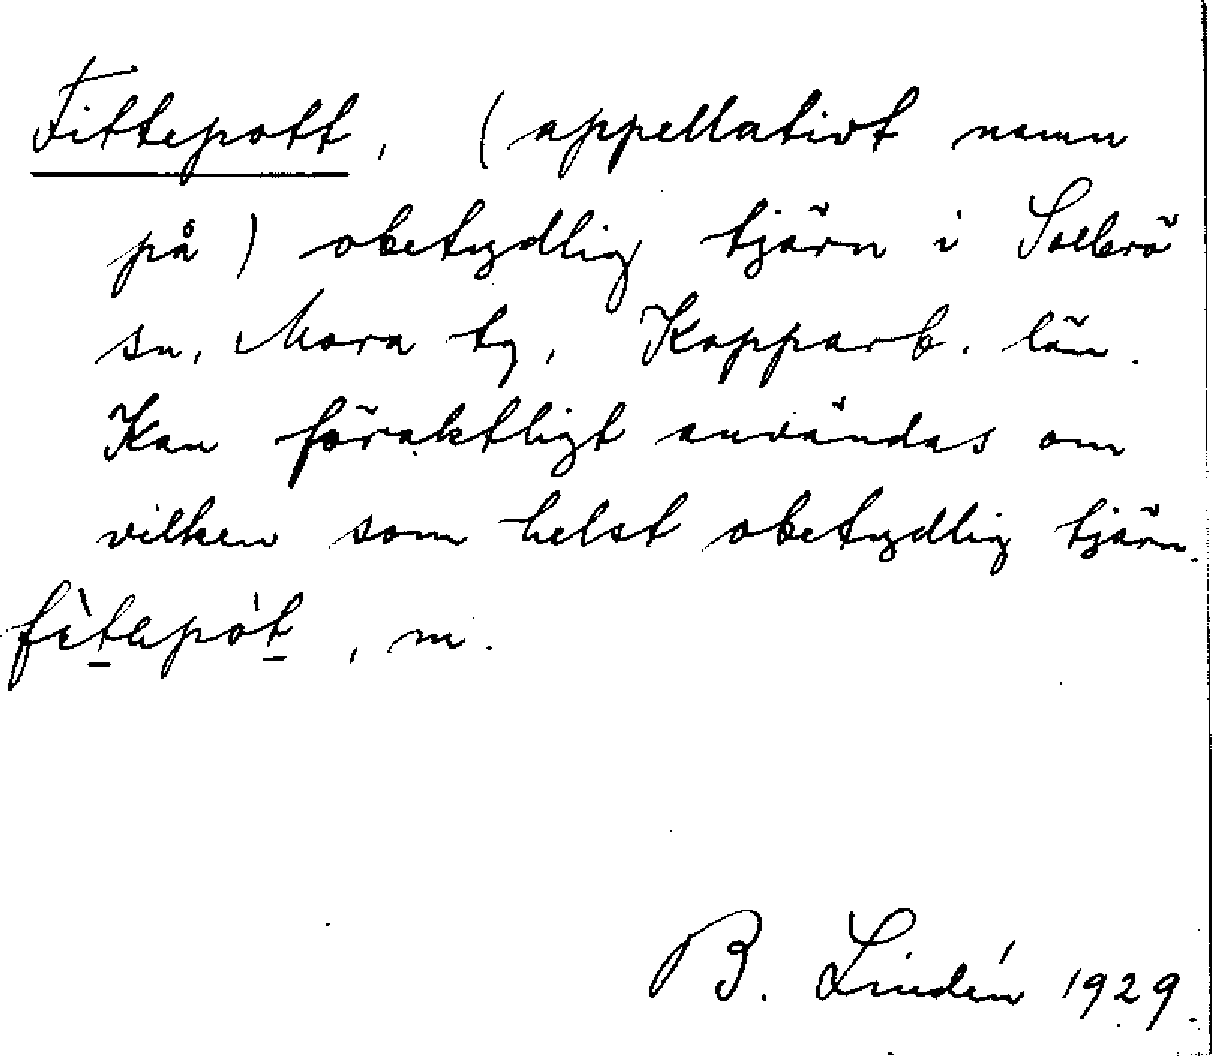 Fittepott, (appellativt namn
på) obetydlig tjärn i Sollerö
sn, Mora tg, Kopparb. län.
Kan föraktligt användas om
vilken som helst obetydlig tjärn.
fìtepót, m.
B. Lindén 1929.